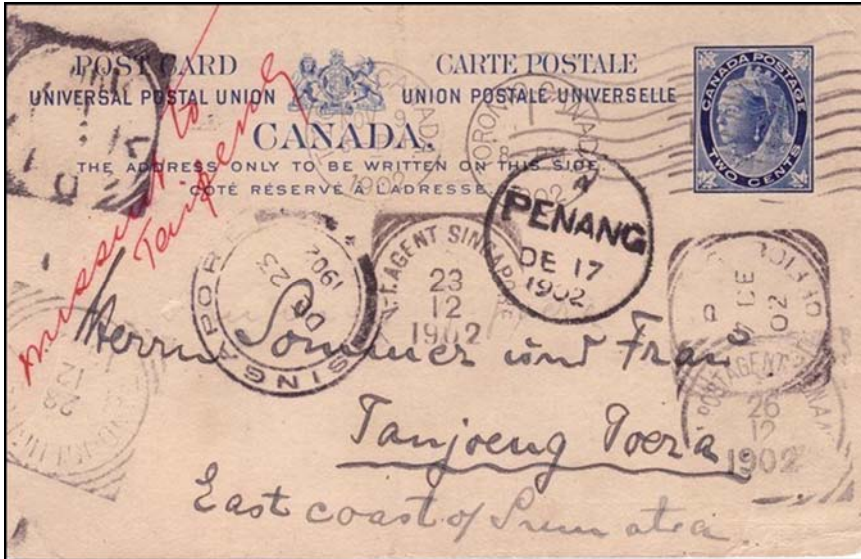 POST CARD
CARTE POSTALE
UNIVERSAL POSTAL UNION
UNION POSTALE UNIVERSELLE
CANADA.
THE ADDRESS ONLY TO BE WRITTEN ON THIS SIDE.
CÔTÉ RÉSERVÉ À L'ADRESSE.
CANADA POSTAGE
TWO CENTS
missent to
Taipeng
1902
TORONTO CANADA
1902
PENANG
DE 17
1902
SINGAPORE
DE 23
1902
P.T. AGENT SINGAPORE
23
12
1902
DE
02
POSTAGENT PENANG
26
12
1902
28
12
Herrn Sommer und Frau
Tanjoeng Poera
East coast of Sumatra